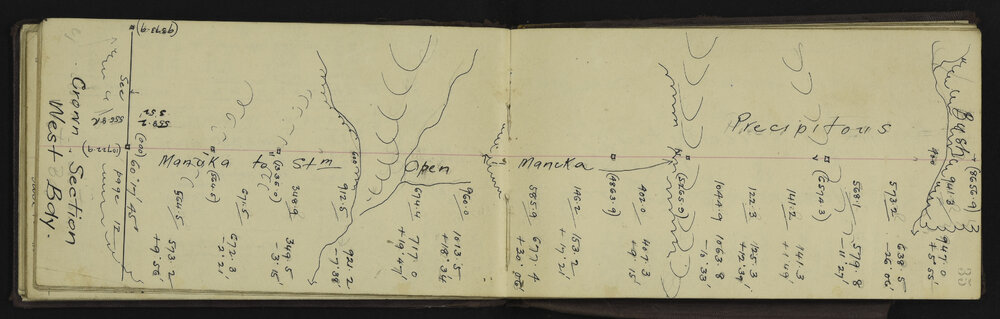 Crown Section
West Bdy.
(9593.9)
See
page 12
(000)
60° 17' 45"
564.5
573.2
+9.56'
Manuka to Stm
Open
Manuka
Precipitous
Bush
(564.5)
671.5
672.3
-2.21'
(1236.0)
348.9
349.5
-3.15'
912.5
921.2
-7.38'
694.4
717.0
+14.47'
960.0
1013.5
+18.34'
585.9
677.4
+30.06'
146.2
153.2
+17.21'
(4863.9)
402.0
407.3
+9.15'
(5265.9)
1044.9
1063.8
122.3
125.3
+12.34'
141.2
141.3
+1.49'
(6574.3)
568.1
579.8
-11.27'
573.2
638.5
-26.06'
941.3
947.0
+5.55'
(8656.9)
35